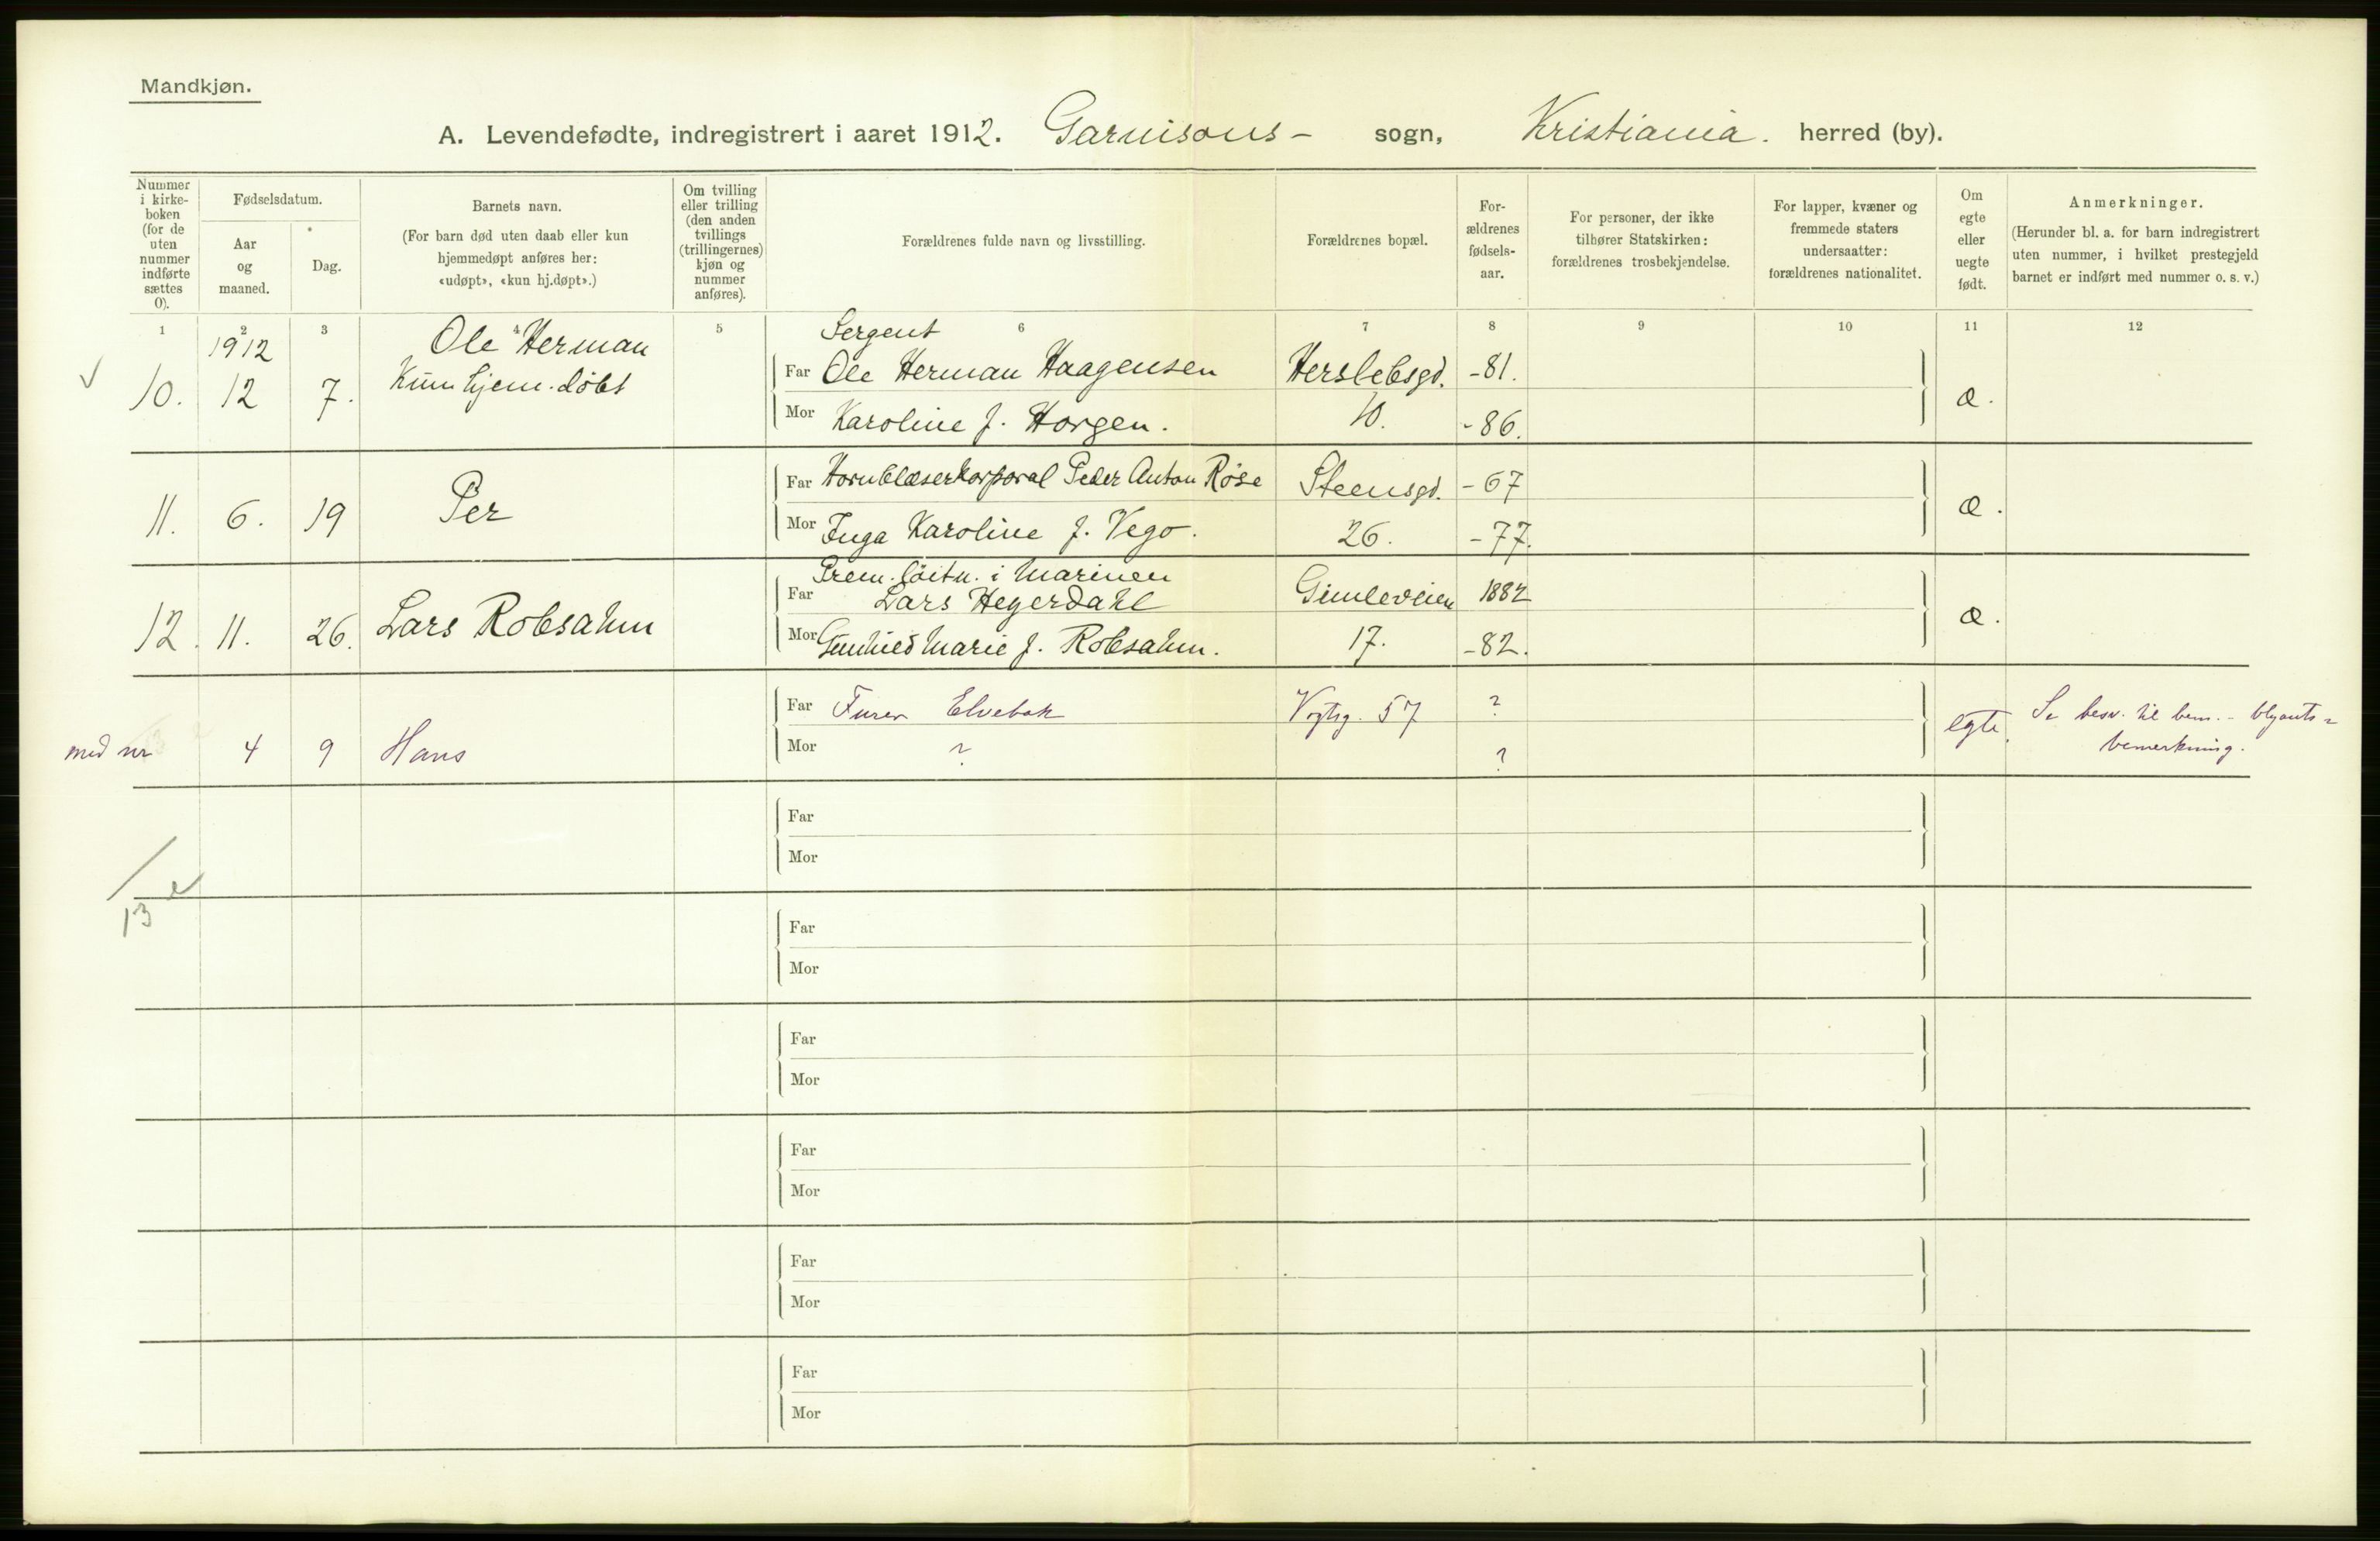 Mandkjøn.
A. Levendefødte, indregistrert i aaret 1912. Garnisons- sogn, Kristiania. herred (by).
Nummer i kirke-boken (for de uten nummer indførte sættes 0).
Fødselsdatum.
Aar og maaned.
Dag.
Barnets navn.
(For barn død uten daab eller kun hjemmedøpt anføres her: «udøpt», «kun hj.døpt».)
Om tvilling eller trilling (den anden tvillings (trillingernes) kjøn og nummer anføres).
Forældrenes fulde navn og livsstilling.
Forældrenes bopæl.
For-ældrenes fødsels-aar.
For personer, der ikke tilhører Statskirken: forældrenes trosbekjendelse.
For lapper, kvæner og fremmede staters undersaatter: forældrenes nationalitet.
Om egte eller uegte født.
Anmerkninger.
(Herunder bl. a. for barn indregistrert uten nummer, i hvilket prestegjeld barnet er indført med nummer o. s. v.)
1 2 3 4 5 6 7 8 9 10 11 12
1912 Ole Herman Sergent
10. 12 7. Kun hjem.døbt Far Ole Herman Haagensen Herslebsgd. -81. æ.
Mor Karoline f. Horgen. 10. -86.
Far Hornblæserkorporal Peder Anton Røse Steensgd. -67
11. 6. 19 Per Mor Inga Karoline f. Vego. 26. -77. æ.
Prem. løitn. i Marinen
Far Lars Hegerdahl Gimleveien 1882
12. 11. 26. Lars Robsahm Mor Marie f. Robsahm. 17. -82. æ.
Far Furer Elvebak Vogtsg. 57 ?
med nr 4 9 Hans Mor ? ? egte. Se besv. til bem. - blyants-
bemerkning.
Far
Mor
13
Far
Mor
Far
Mor
Far
Mor
Far
Mor
Far
Mor